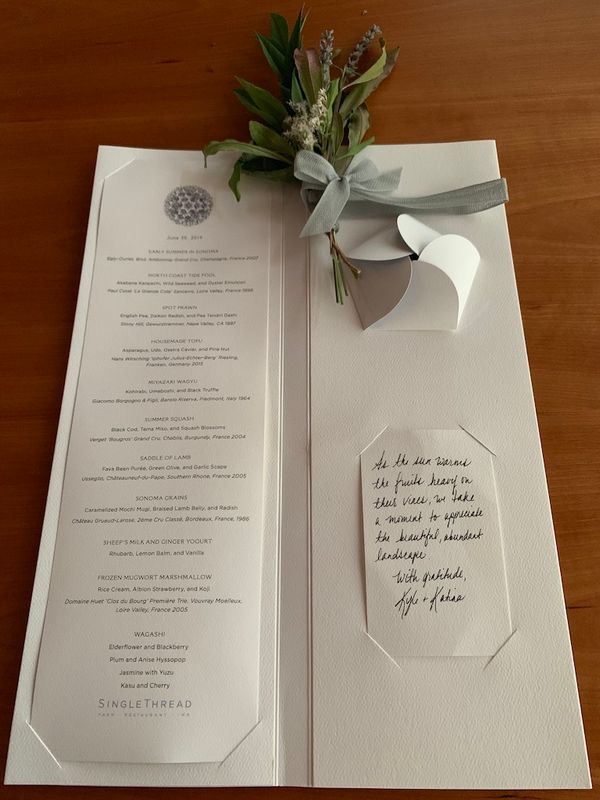 June 30, 2019
EARLY SUMMER IN SONOMA
Egly-Ouriet, Brut, Ambonnay Grand Cru, Champagne, France 2007
NORTH COAST TIDE POOL
Akabana Kanpachi, Wild Seaweed, and Oyster Emulsion
Paul Cotat 'La Grande Cote' Sancerre, Loire Valley, France 1998
SPOT PRAWN
English Pea, Daikon Radish, and Pea Tendril Dashi
Stony Hill, Gewurztraminer, Napa Valley, CA 1997
HOUSEMADE TOFU
Asparagus, Udo, Osetra Caviar, and Pine Nut
Hans Wirsching 'Iphofer Julius-Echter-Berg' Riesling,
Franken, Germany 2015
MIYAZAKI WAGYU
Kohlrabi, Umeboshi, and Black Truffle
Giacomo Borgogno & Figli, Barolo Riserva, Piedmont, Italy 1964
SUMMER SQUASH
Black Cod, Tama Miso, and Squash Blossoms
Verget 'Bougros' Grand Cru, Chablis, Burgundy, France 2004
SADDLE OF LAMB
Fava Bean Purée, Green Olive, and Garlic Scape
Usseglio, Châteauneuf-du-Pape, Southern Rhone, France 2005
SONOMA GRAINS
Caramelized Mochi Mugi, Braised Lamb Belly, and Radish
Château Gruaud-Larose, 2ème Cru Classé, Bordeaux, France, 1986
SHEEP'S MILK AND GINGER YOGURT
Rhubarb, Lemon Balm, and Vanilla
FROZEN MUGWORT MARSHMALLOW
Rice Cream, Albion Strawberry, and Koji
Domaine Huet 'Clos du Bourg' Première Trie, Vouvray Moelleux,
Loire Valley, France 2005
WAGASHI
Elderflower and Blackberry
Plum and Anise Hyssopop
Jasmine with Yuzu
Kasu and Cherry
SINGLETHREAD
FARM - RESTAURANT - INN
As the sun warms
the fruits heavy on
their vines, we take
a moment to appreciate
the beautiful, abundant
landscape.
With gratitude,
Kyle + Katina